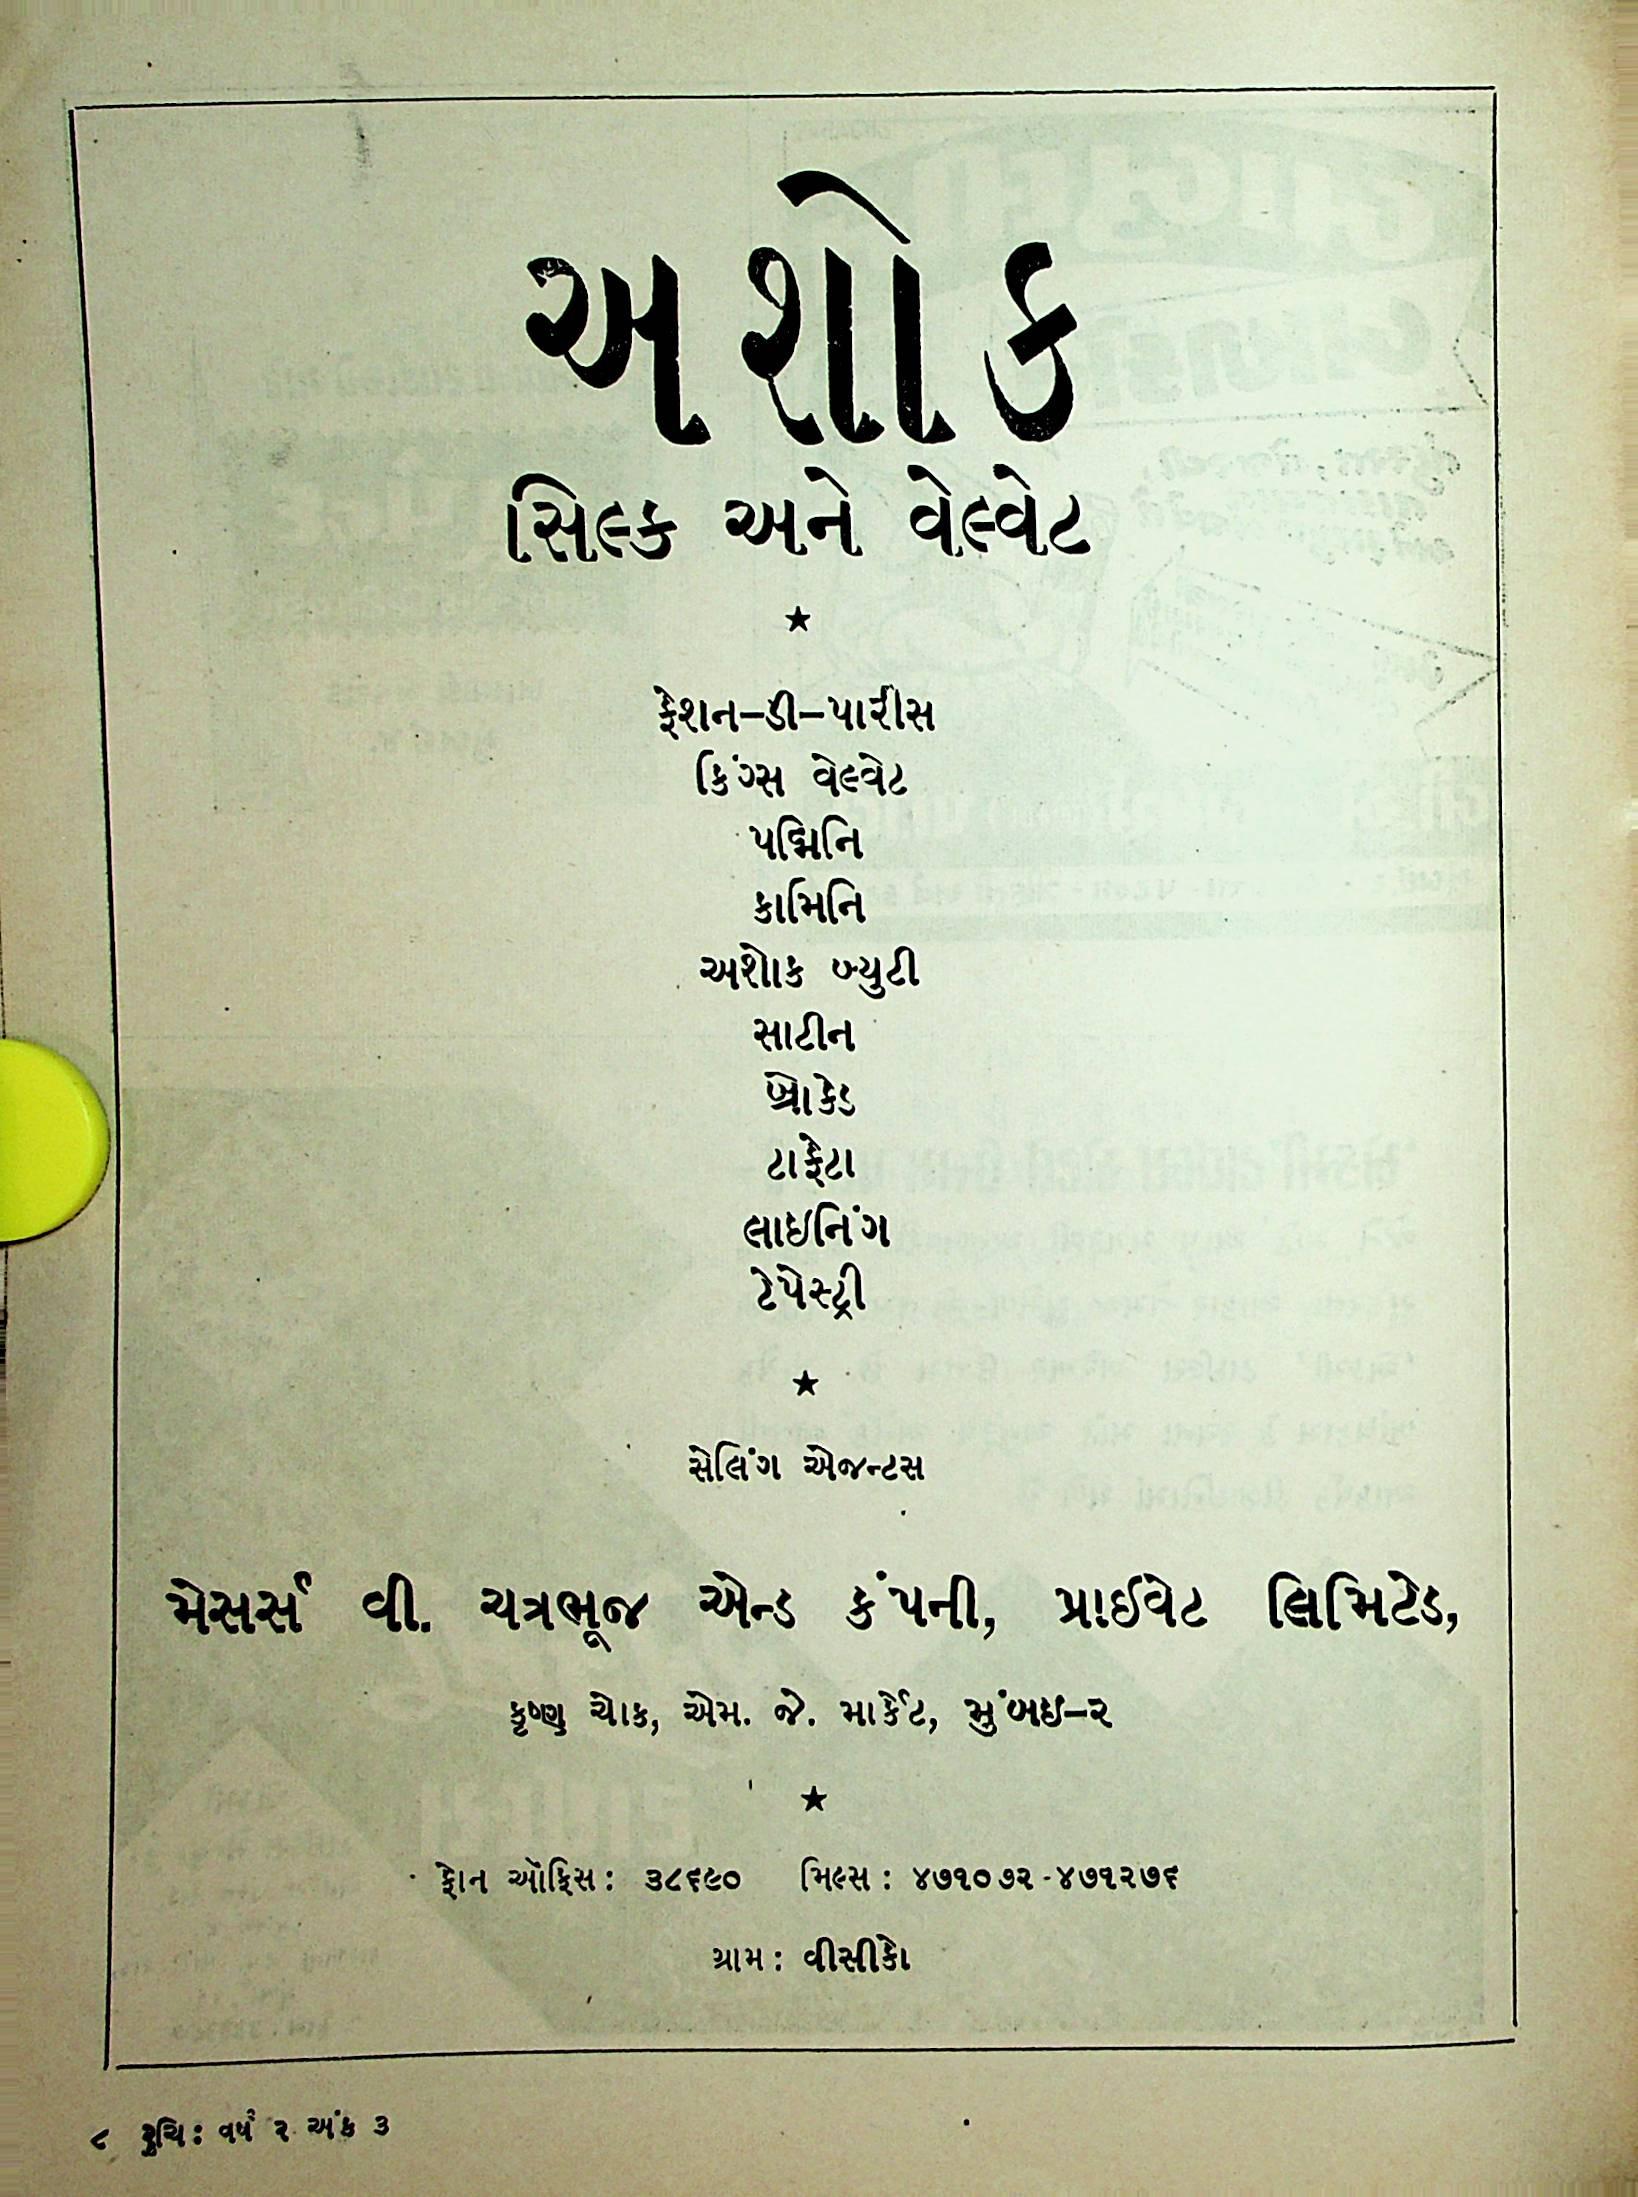 અશોક
સિલ્ક અને વેલ્વેટ
★
ફેશન–ડી–પારીસ
કિંગ્સ વેલ્વેટ
પદ્મિનિ
કામિનિ
અશોક બ્યુટી
સાટીન
બ્રોકેડ
ટાફેટા
લાઇનિંગ
ટેપેસ્ટ્રી
★
સેલિંગ એજન્ટસ
મેસર્સ વી. ચત્રભૂજ એન્ડ કંપની, પ્રાઈવેટ લિમિટેડ,
કૃષ્ણ ચોક, એમ. જે. માર્કેટ, મુંબઇ–૨
★
ફોન ઑફિસ: ૩૮૬૯૦ મિલ્સ: ૪૭૧૦૭૨-૪૭૧૨૭૬
ગ્રામ: વીસીકો
૮ રુચિ: વર્ષ ૨ અંક ૩